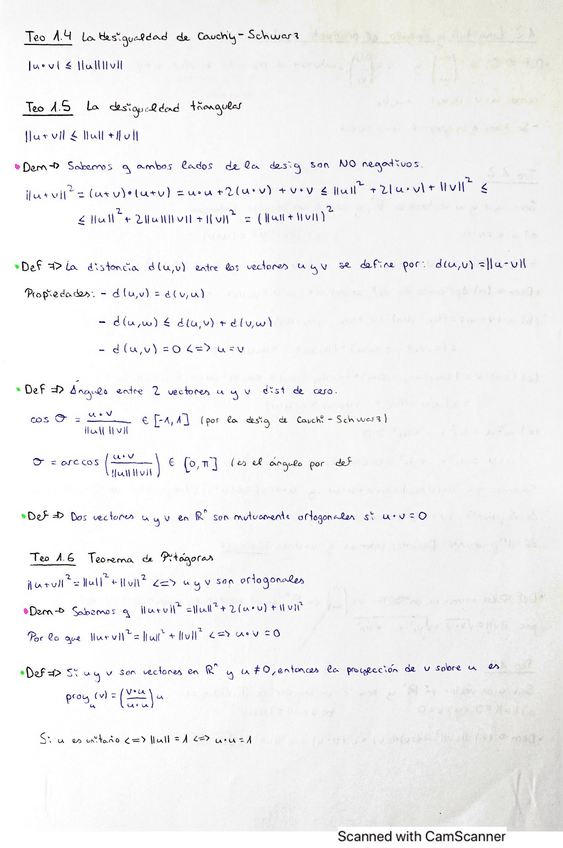 Teo 1.4 La desigualdad de Cauchy-Schwarz
|u•v| ≤ ||u|| ||v||
Teo 1.5 La desigualdad triangular
||u+v|| ≤ ||u|| + ||v||
• Dem → Sabemos q ambos lados de la desig son NO negativos.
||u+v||² = (u+v)•(u+v) = u•u + 2(u•v) + v•v ≤ ||u||² + 2|u•v| + ||v||² ≤
≤ ||u||² + 2||u|| ||v|| + ||v||² = (||u|| + ||v||)²
• Def => La distancia d(u,v) entre los vectores u y v se define por: d(u,v) = ||u-v||
Propiedades: - d(u,v) = d(v,u)
- d(u,w) ≤ d(u,v) + d(v,w)
- d(u,v) = 0 <=> u=v
• Def => Ángulo entre 2 vectores u y v dist de cero.
cos σ = u•v / ||u|| ||v|| ∈ [-1,1] (por la desig de Cauchi-Schwarz)
σ = arccos (u•v / ||u|| ||v||) ∈ [0,π] (es el ángulo por def
• Def => Dos vectores u y v en ℝⁿ son mutuamente ortogonales si u•v=0
Teo 1.6 Teorema de Pitágoras
||u+v||² = ||u||² + ||v||² <=> u y v son ortogonales
• Dem → Sabemos q ||u+v||² = ||u||² + 2(u•v) + ||v||²
Por lo que ||u+v||² = ||u||² + ||v||² <=> u•v = 0
• Def => Si u y v son vectores en ℝⁿ y u ≠ 0, entonces la proyección de v sobre u es
proyᵤ(v) = (v•u / u•u) u
Si u es unitario <=> ||u|| = 1 <=> u•u = 1
Scanned with CamScanner